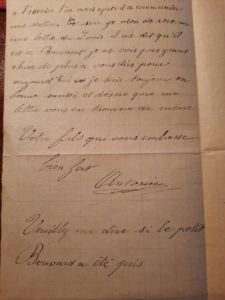 à l'exercice l'on nous apprend a commander
une section. Ce soir je viens de recevoir
une lettre du Louis il me dit qu'il
est a Bourant je ne vois pas grand
chose de plus a vous dire pour
aujourd'hui je suis toujours en
bonne santé et désire que ma
lettre vous en trouve de même
Votre fils qui vous embrasse
bien fort
Antonin
Veuillez me dire si le petit
Bouvard a été pris